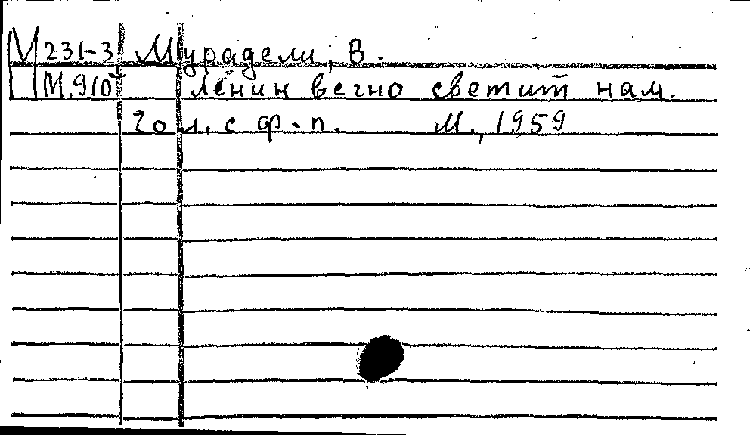 М 231-3 Мурадели, В.
М.910 Ленин вечно светит нам.
Гол. с ф-п. М., 1959